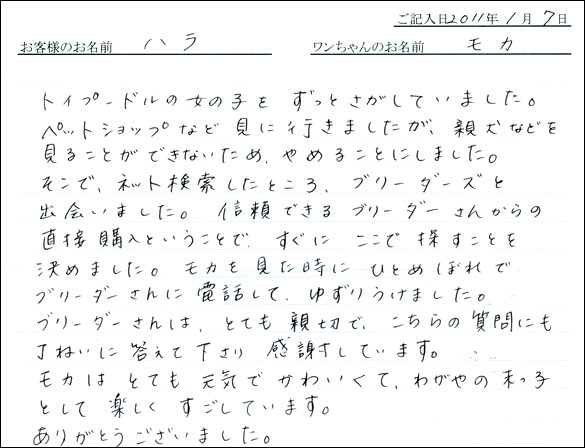 ご記入日2011年1月7日
お客様のお名前 ハラ ワンちゃんのお名前 モカ
トイプードルの女の子を ずっとさがしていました。
ペットショップなど見に行きましたが、親犬などを
見ることができないため、やめることにしました。
そこで、ネット検索したところ、ブリーダーズと
出会いました。信頼できるブリーダーさんからの
直接購入ということで、すぐに ここで 探すことを
決めました。モカを見た時に ひとめぼれで
ブリーダーさんに 電話して、ゆずりうけました。
ブリーダーさんは、とても親切で、こちらの質問にも
ていねいに答えて下さり 感謝しています。
モカは とても 元気で かわいくて、わがやの末っ子
として 楽しく すごしています。
ありがとうございました。